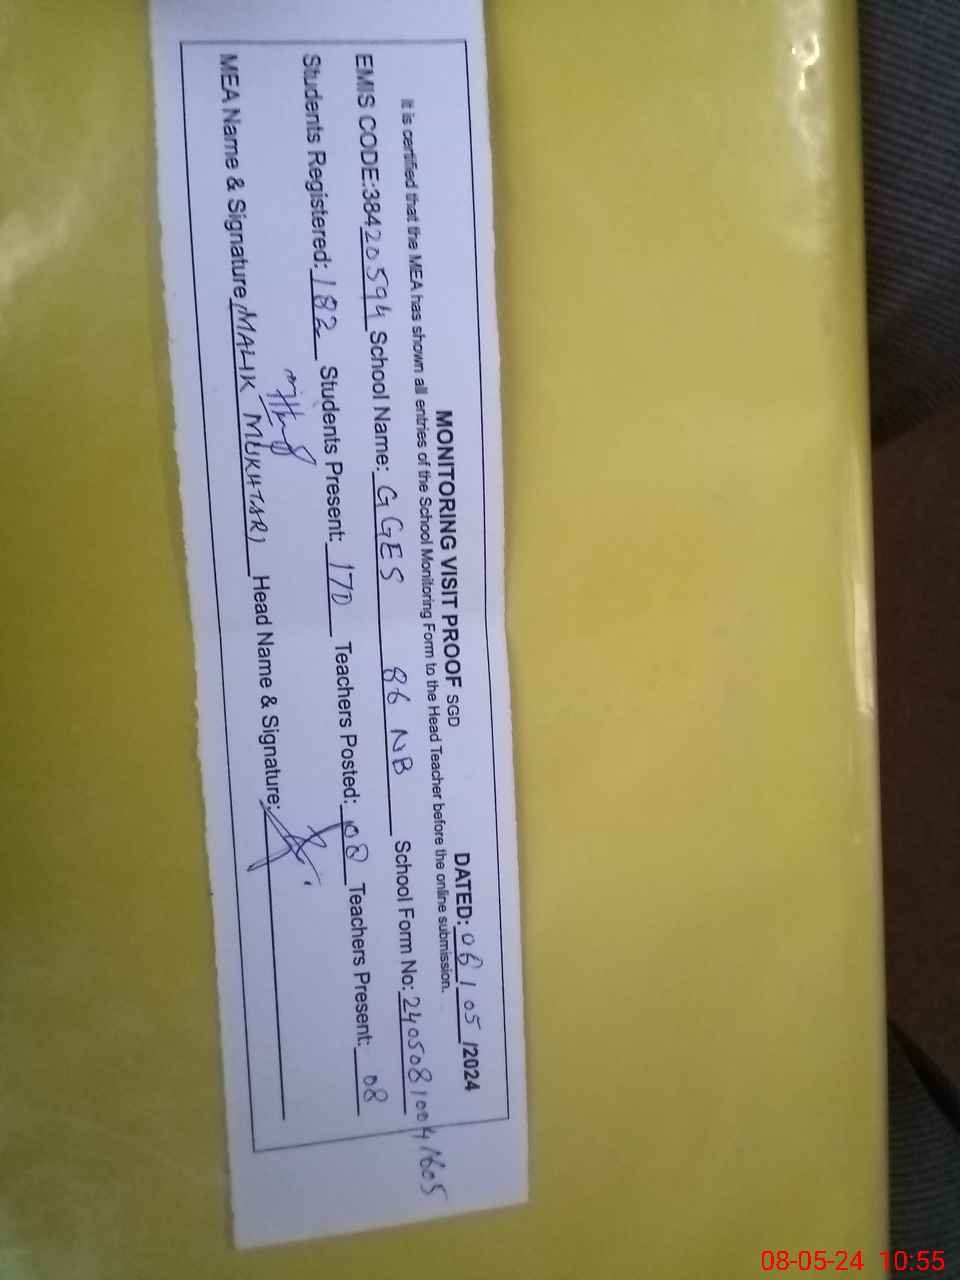 MONITORING VISIT PROOF SGD DATED: 06/05/2024
It is certified that the MEA has shown all entries of the School Monitoring Form to the Head Teacher before the online submission.
EMIS CODE:38420594 School Name: GGES 86 NB School Form No: 24050810041605
Students Registered: 182 Students Present: 170 Teachers Posted: 08 Teachers Present: 08
MEA Name & Signature (MALIK MUKHTAR) Head Name & Signature:
08-05-24 10:55